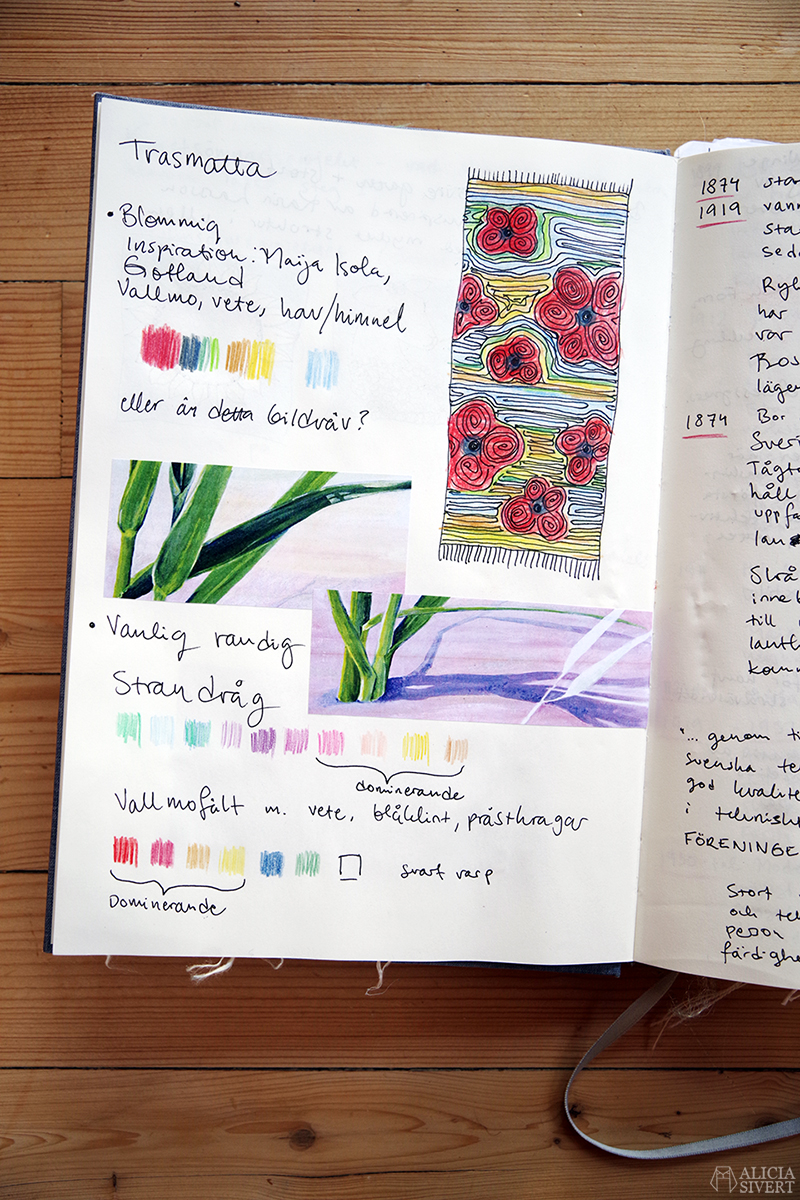 Trasmatta
• Blommig
Inspiration: Maija Isola,
Gotland
Vallmo, vete, hav/himmel
eller är detta bildväv?
• Vanlig randig
Strandråg
dominerande
Vallmofält m. vete, blåklint, prästkragar
svart varp
Dominerande
1874
1919
Ryl
har
var
läger
1874 Bor
Sveri
Tågt
håll
uppfa
lan
Strå
inneb
till
lantl
komm
"... genom ti
svenska te
god kvalite
i teknisk
FÖRENINGE
Stort
och te
person
färdighe
ALICIA
SIVERT